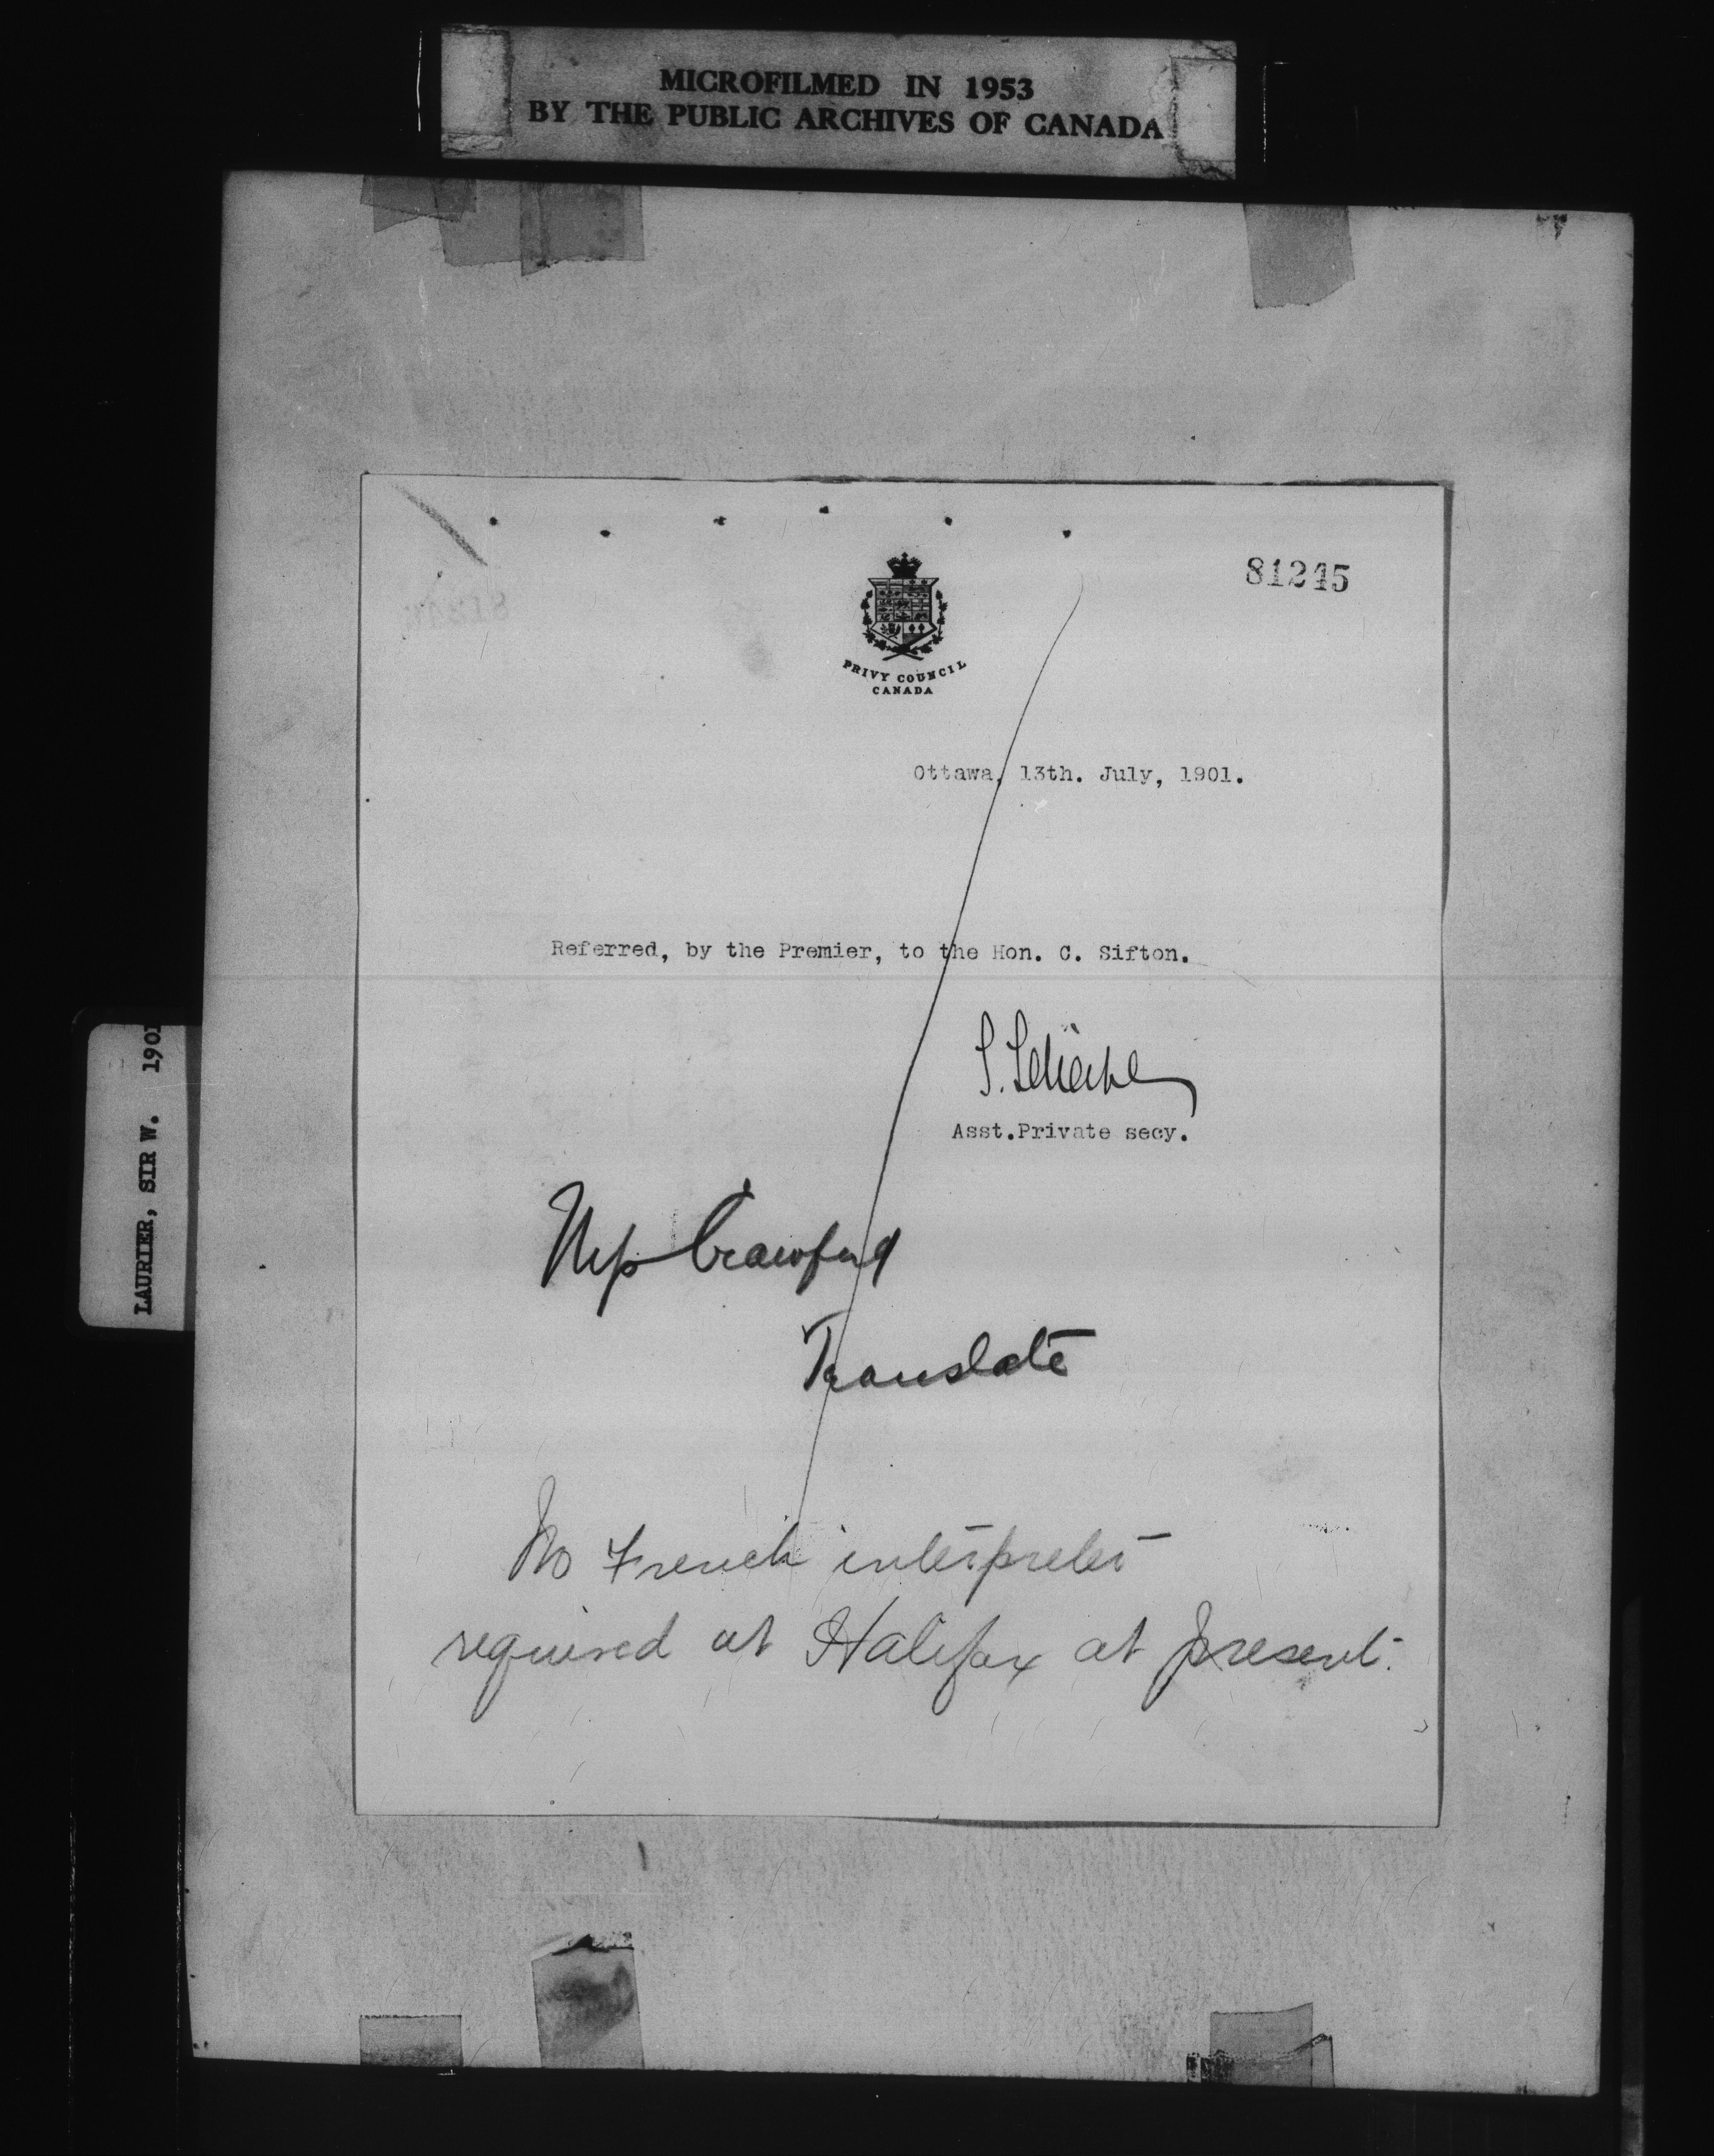 MICROFILMED IN 1953
BY THE PUBLIC ARCHIVES OF CANADA
81245
PRIVY COUNCIL
CANADA
Ottawa, 13th. July, 1901.
Referred, by the Premier, to the Hon. C. Sifton.
Asst.Private secy.
Crawford
Translate
No French interpreter
required at Halifax at present.
LAURIER, SIR W. 1901